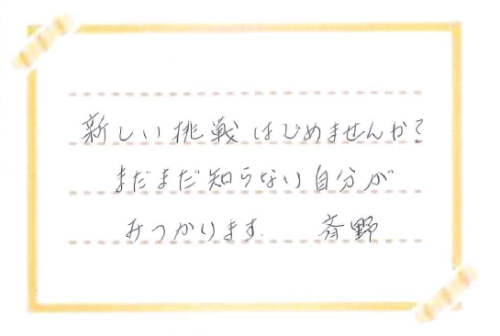 新しい挑戦はじめませんか?
まだまだ知らない自分が
みつかります. 斉野